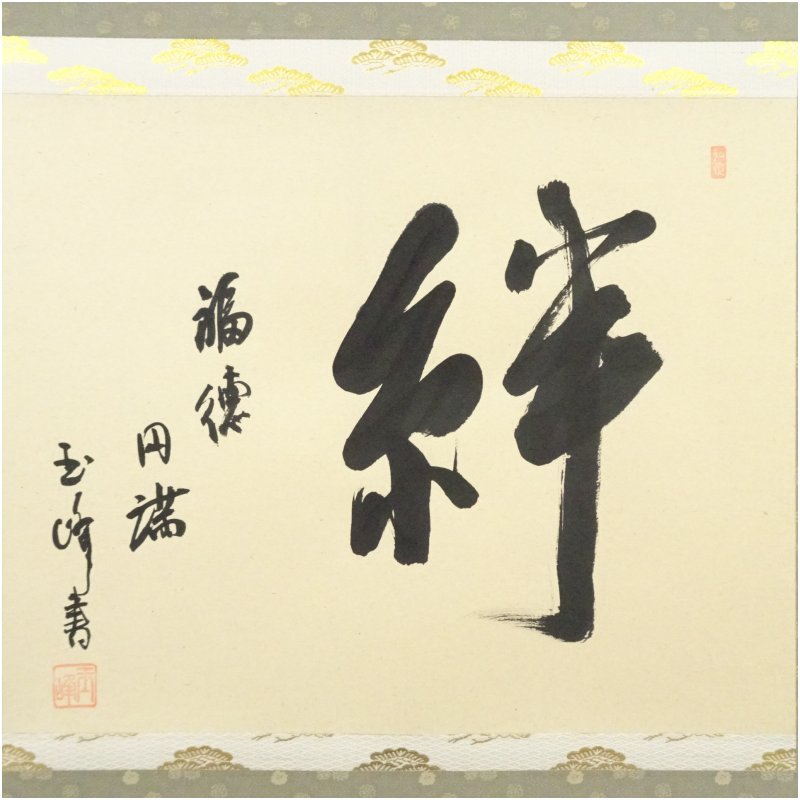 絆
福徳
円満
玉峰書
玉峰